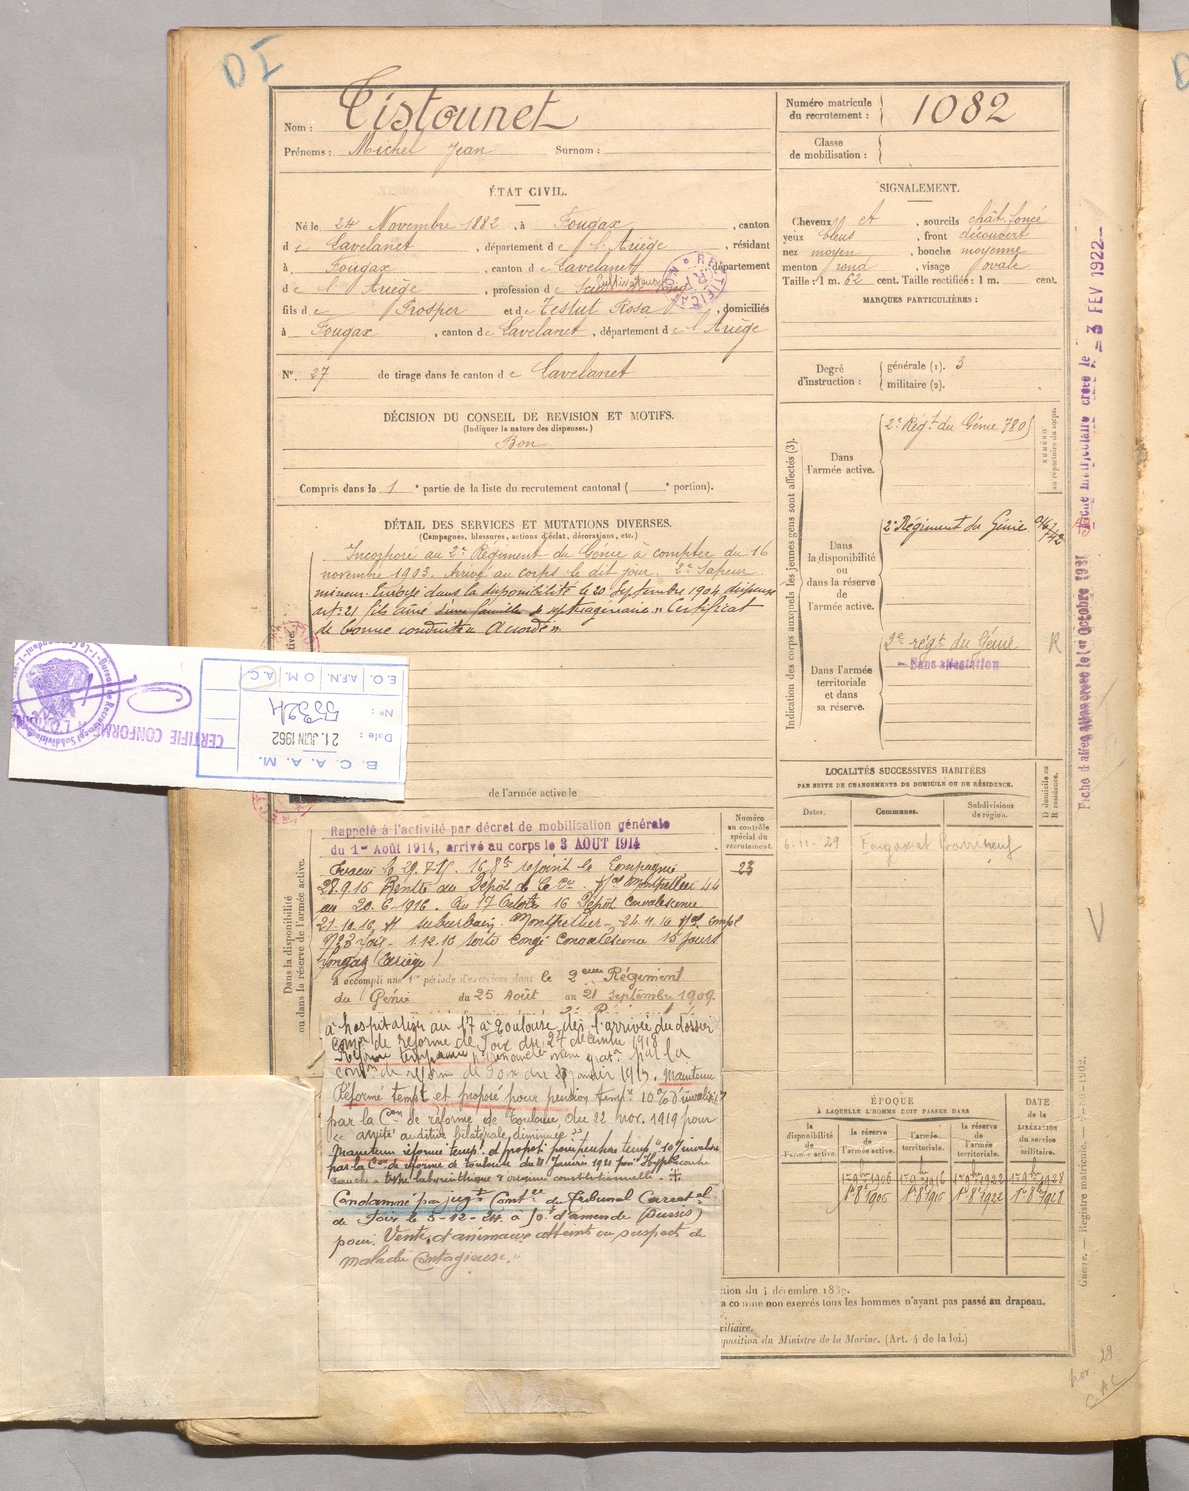 DI
Nom : Tistounet
Prénoms : Michel Jean Surnom :
Numéro matricule du recrutement : 1082
Classe de mobilisation :
ÉTAT CIVIL.
Né le 24 Novembre 1882, à Fougax, canton
de Lavelanet, département de l'Ariège, résidant
à Fougax, canton de Lavelanet, département
de l'Ariège, profession de Cultivateur
fils de Prosper et de Testut Rosa, domiciliés
à Fougax, canton de Lavelanet, département de l'Ariège
N° 27 de tirage dans le canton de Lavelanet
DÉCISION DU CONSEIL DE REVISION ET MOTIFS.
(Indiquer la nature des dispenses.)
Bon
Compris dans la 1e partie de la liste du recrutement cantonal ( e portion).
DÉTAIL DES SERVICES ET MUTATIONS DIVERSES.
(Campagnes, blessures, actions d'éclat, décorations, etc.)
Incorporé au 2e Régiment du Génie à compter du 16
novembre 1903. Arrivé au corps le dit jour. 2e Sapeur
mineur. Envoyé dans la disponibilité le 20 Septembre 1904 dispense
art. 21 fils aîné d'une famille de septuagénaire. Certificat
de bonne conduite "Accordé".
B. C. A. A. M.
Date : 21. JUIN 1962
N° : 5324
E.O. A.F.N. O.M. A.C.
CERTIFIE CONFORME
de l'armée active le
Dans la disponibilité
ou dans la réserve de l'armée active.
Rappelé à l'activité par décret de mobilisation générale
du 1er Août 1914, arrivé au corps le 3 AOUT 1914
rejoint la Compagnie
28.9.16 Rentre au Dépôt Montpellier 44
au 20-6-1916. Du 17 Octobre 16 Dépôt Convalescence
21-10-16 suburbain Montpellier 24.11.16
Foix. 1.12.16 sorti Congé Convalescence 15 jours
Fougax (Ariège)
a accompli une 1re période d'exercices dans le 2ème Régiment
du Génie du 25 Août au 21 Septembre 1909.
à hospitaliser au 17 à Toulouse dès l'arrivée du dossier
de réforme de Foix du 27 décembre 1918
Réforme temporaire par la
de réforme de Foix du 1919. Maintenu
Réformé tempt et proposé pour pension tempre 10% d'invalidité
par la Con de réforme de Toulouse du 22 nov. 1919 pour
acuité auditive bilatérale diminuée
Maintenu réformé temp. et propot pour pension temp. 10% invalidité
par la Con de réforme de Toulouse du 21 Janvier 1921 pour Hypoacousie
gauche labyrinthique d'origine constitutionnelle
Condamné par jugt Contre du Tribunal Correctel
de Foix le 5-12-24 à 50f d'amende (sursis)
pour: Vente d'animaux atteints ou suspects de
maladie contagieuse."
Numéro au contrôle spécial du recrutement.
23
SIGNALEMENT.
Cheveux et, sourcils chât. foncé
yeux bleus, front découvert
nez moyen, bouche moyenne
menton rond, visage ovale
Taille : 1 m. 62 cent. Taille rectifiée : 1 m. cent.
MARQUES PARTICULIÈRES :
Degré d'instruction : générale (1). 3
militaire (2).
Indication des corps auxquels les jeunes gens sont affectés (3).
NUMÉRO au répertoire du corps.
Dans l'armée active. 2e Régt du Génie 7805
Dans la disponibilité ou dans la réserve de l'armée active. 2e Régiment du Génie
Dans l'armée territoriale et dans sa réserve. 2e régt du Génie R
Sans affectation
LOCALITÉS SUCCESSIVES HABITÉES
PAR SUITE DE CHANGEMENTS DE DOMICILE OU DE RÉSIDENCE.
Dates. Communes. Subdivisions de région. D domicile ou R résidence.
6-11-29 Fougax et Barrineuf
ÉPOQUE
À LAQUELLE L'HOMME DOIT PASSER DANS
DATE de la LIBÉRATION du service militaire.
la disponibilité de l'armée active. la réserve de l'armée active. l'armée territoriale. la réserve de l'armée territoriale.
1er 9bre 1906 1er 9bre 1916 1er 9bre 1922 1er 9bre 1928
1er 8bre 1906 1er 8bre 1916 1er 8bre 1922 1er 8bre 1928
tion du 4 décembre 1889.
comme non exercés tous les hommes n'ayant pas passé au drapeau.
xiliaire.
position du Ministre de la Marine. (Art. 4 de la loi.)
Fiche matriculaire créée le - 3 FEV 1922
Guerre. — Registre matricule. — 1902.
nov. 29
CAC